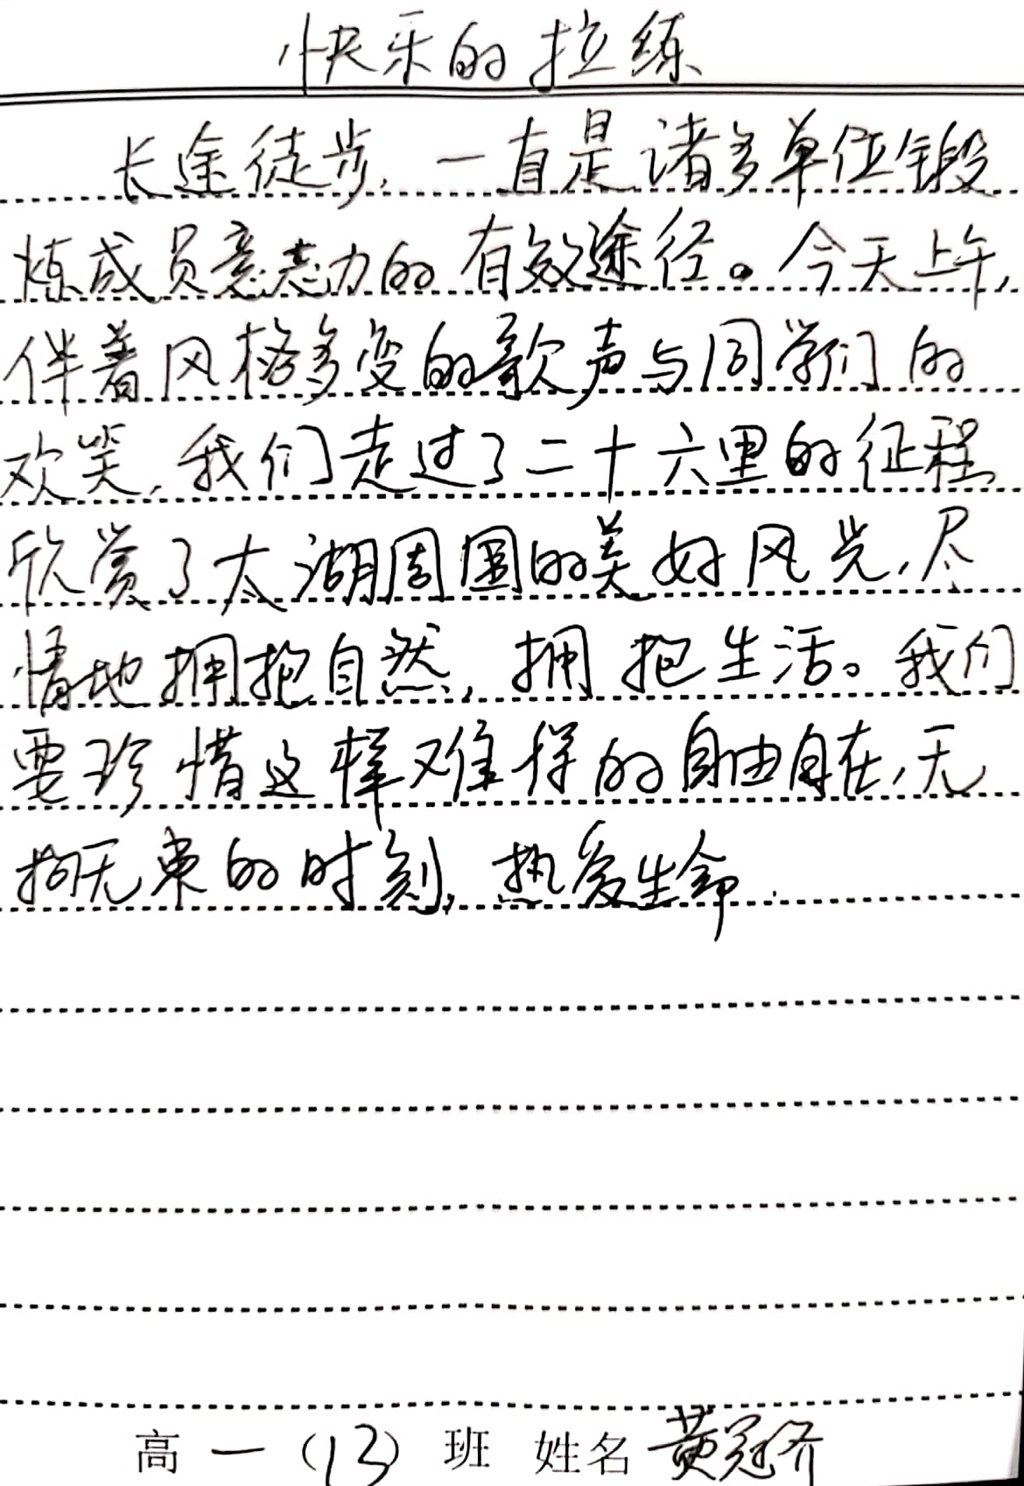 快乐的拉练
长途徒步,一直是诸多单位锻
炼成员意志力的有效途径。今天上午,
伴着风格多变的歌声与同学们的
欢笑,我们走过了二十六里的征程,
欣赏了太湖周围的美好风光,尽
情地拥抱自然,拥抱生活。我们
要珍惜这样难得的自由自在,无
拘无束的时刻,热爱生命.
高一(13)班 姓名 黄冠齐